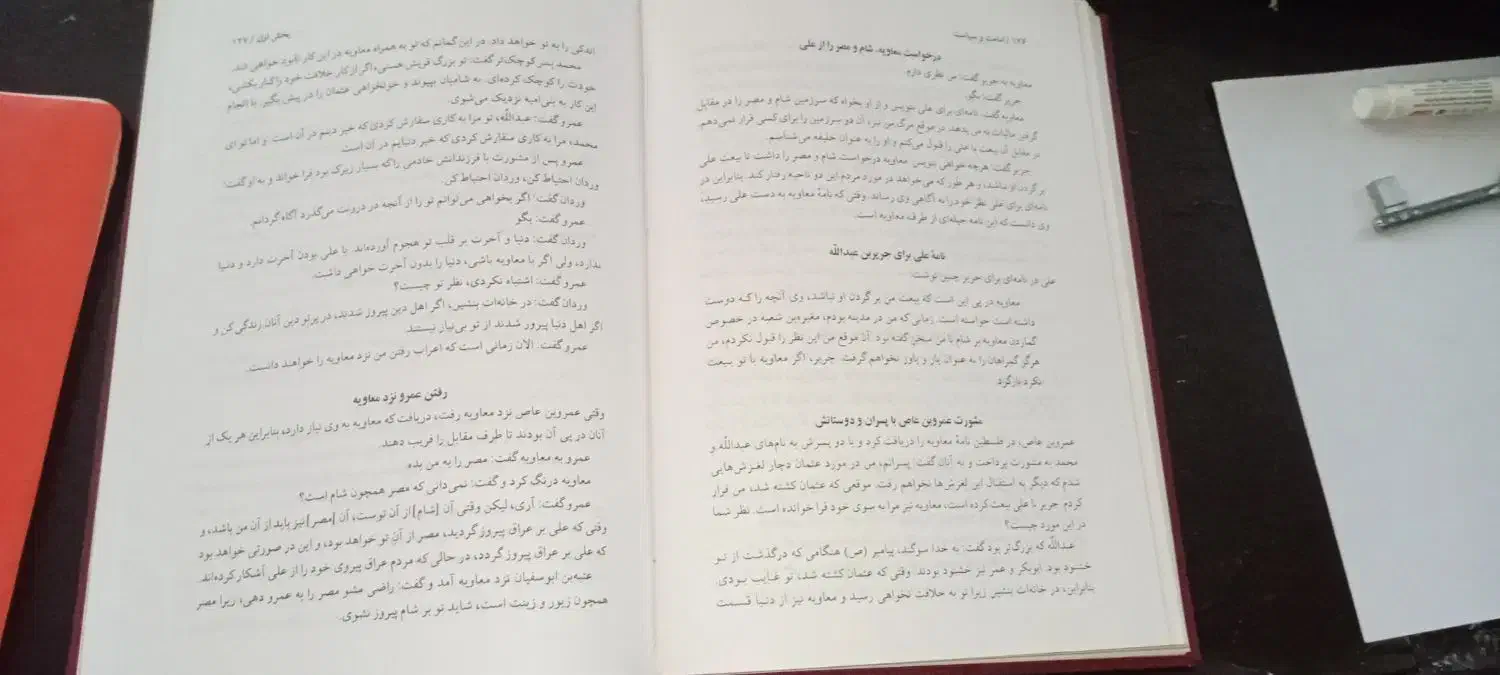 ۱۲۶ / امامت و سیاست
درخواست معاویه، شام و مصر را از علی
معاویه به جریر گفت: من نظری دارم.
جریر گفت: بگو.
معاویه گفت: نامه‌ای برای علی بنویس و از او بخواه که سرزمین شام و مصر را در مقابل
گردن مالیات به من بدهد. در موقع مرگ من نیز، آن دو سرزمین را برای کسی قرار نمی‌دهم.
در مقابل آن بیعت با علی را قبول می‌کنم و او را به عنوان خلیفه می‌شناسم.
جریر گفت: هرچه خواهی بنویس. معاویه درخواست شام و مصر را داشت تا بیعت علی
بر گردن او نباشد، و هر طور که می‌خواهد در مورد مردم این دو ناحیه رفتار کند. بنابراین در
نامه‌ای برای علی نظر خود را به آگاهی وی رساند. وقتی که نامهٔ معاویه به دست علی رسید،
وی دانست که این نامه حیله‌ای از طرف معاویه است.
نامهٔ علی برای جریربن عبداللّه
علی در نامه‌ای برای جریر چنین نوشت:
معاویه در پی این است که بیعت من بر گردن او نباشد، وی آنچه را که دوست
داشته است خواسته است. زمانی که من در مدینه بودم، مغیره‌بن شعبه در خصوص
گماردن معاویه بر شام با من سخن گفته بود. آن موقع من این نظر را قبول نکردم، من
هرگز گمراهان را به عنوان یار و یاور نخواهم گرفت. جریر، اگر معاویه با تو بیعت
نکرد بازگرد.
مشورت عمروبن عاص با پسران و دوستانش
عمروبن عاص، در فلسطین نامهٔ معاویه را دریافت کرد و با دو پسرش به نام‌های عبداللّه و
محمد به مشورت پرداخت و به آنان گفت: پسرانم، من در مورد عثمان دچار لغزش‌هایی
شدم که دیگر به استقبال این لغزش‌ها نخواهم رفت. موقعی که عثمان کشته شد، من فرار
کردم. جریر با علی بیعت کرده است، معاویه نیز مرا به سوی خود فرا خوانده است. نظر شما
در این مورد چیست؟
عبداللّه که بزرگ‌تر بود گفت: به خدا سوگند، پیامبر (ص) هنگامی که درگذشت از تو
خشنود بود. ابوبکر و عمر نیز خشنود بودند. وقتی که عثمان کشته شد، تو غایب بودی.
بنابراین، در خانه‌ات بنشین زیرا تو به خلافت نخواهی رسید و معاویه نیز از دنیا قسمت
بخش اول / ۱۲۷
اندکی را به تو خواهد داد. در این گمانم که تو به همراه معاویه در این کار نابود خواهی شد.
محمد پسر کوچک‌تر گفت: تو بزرگ قریش هستی، اگر از کار خلافت خود را کنار بکشی،
خودت را کوچک کرده‌ای. به شامیان بپیوند و خونخواهی عثمان را در پیش بگیر. با انجام
این کار به بنی‌امیه نزدیک می‌شوی.
عمرو گفت: عبداللّه، تو مرا به کاری سفارش کردی که خیر دینم در آن است. و اما تو ای
محمد، مرا به کاری سفارش کردی که خیر دنیایم در آن است.
عمرو پس از مشورت با فرزندانش خادمی را که بسیار زیرک بود فرا خواند و به او گفت:
وردان احتیاط کن، وردان احتیاط کن.
وردان گفت: اگر بخواهی می‌توانم تو را از آنچه در درونت می‌گذرد آگاه گردانم.
عمرو گفت: بگو
وردان گفت: دنیا و آخرت بر قلب تو هجوم آورده‌اند. با علی بودن آخرت دارد و دنیا
ندارد، ولی اگر با معاویه باشی، دنیا را بدون آخرت خواهی داشت.
عمرو گفت: اشتباه نکردی، نظر تو چیست؟
وردان گفت: در خانه‌ات بنشین، اگر اهل دین پیروز شدند، در پرتو دین آنان زندگی کن و
اگر اهل دنیا پیروز شدند از تو بی‌نیاز نیستند.
عمرو گفت: الان زمانی است که اعراب رفتن من نزد معاویه را خواهند دانست.
رفتن عمرو نزد معاویه
وقتی عمروبن عاص نزد معاویه رفت، دریافت که معاویه به وی نیاز دارد، بنابراین هر یک از
آنان در پی آن بودند تا طرف مقابل را فریب دهند.
عمرو به معاویه گفت: مصر را به من بده.
معاویه درنگ کرد و گفت: نمی‌دانی که مصر همچون شام است؟
عمرو گفت: آری، لیکن وقتی آن [شام] از آن توست، آن [مصر] نیز باید از آن من باشد، و
وقتی که علی بر عراق پیروز گردید، مصر از آن تو خواهد بود، و این در صورتی خواهد بود
که علی بر عراق پیروز گردد، در حالی که مردم عراق پیروی خود را از علی آشکار کرده‌اند.
عتبه‌بن ابوسفیان نزد معاویه آمد و گفت: راضی مشو مصر را به عمرو دهی، زیرا مصر
همچون زیور و زینت است، شاید تو بر شام پیروز نشوی.